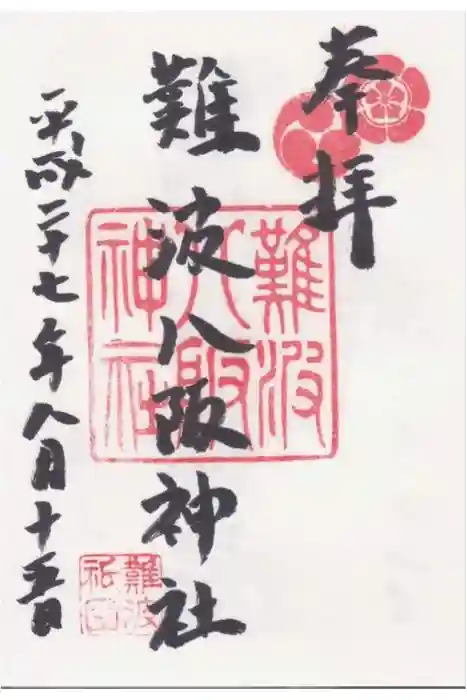 奉拝
難波八阪神社
平成二十七年八月十五日
難波
八阪
神社
難波
祇園